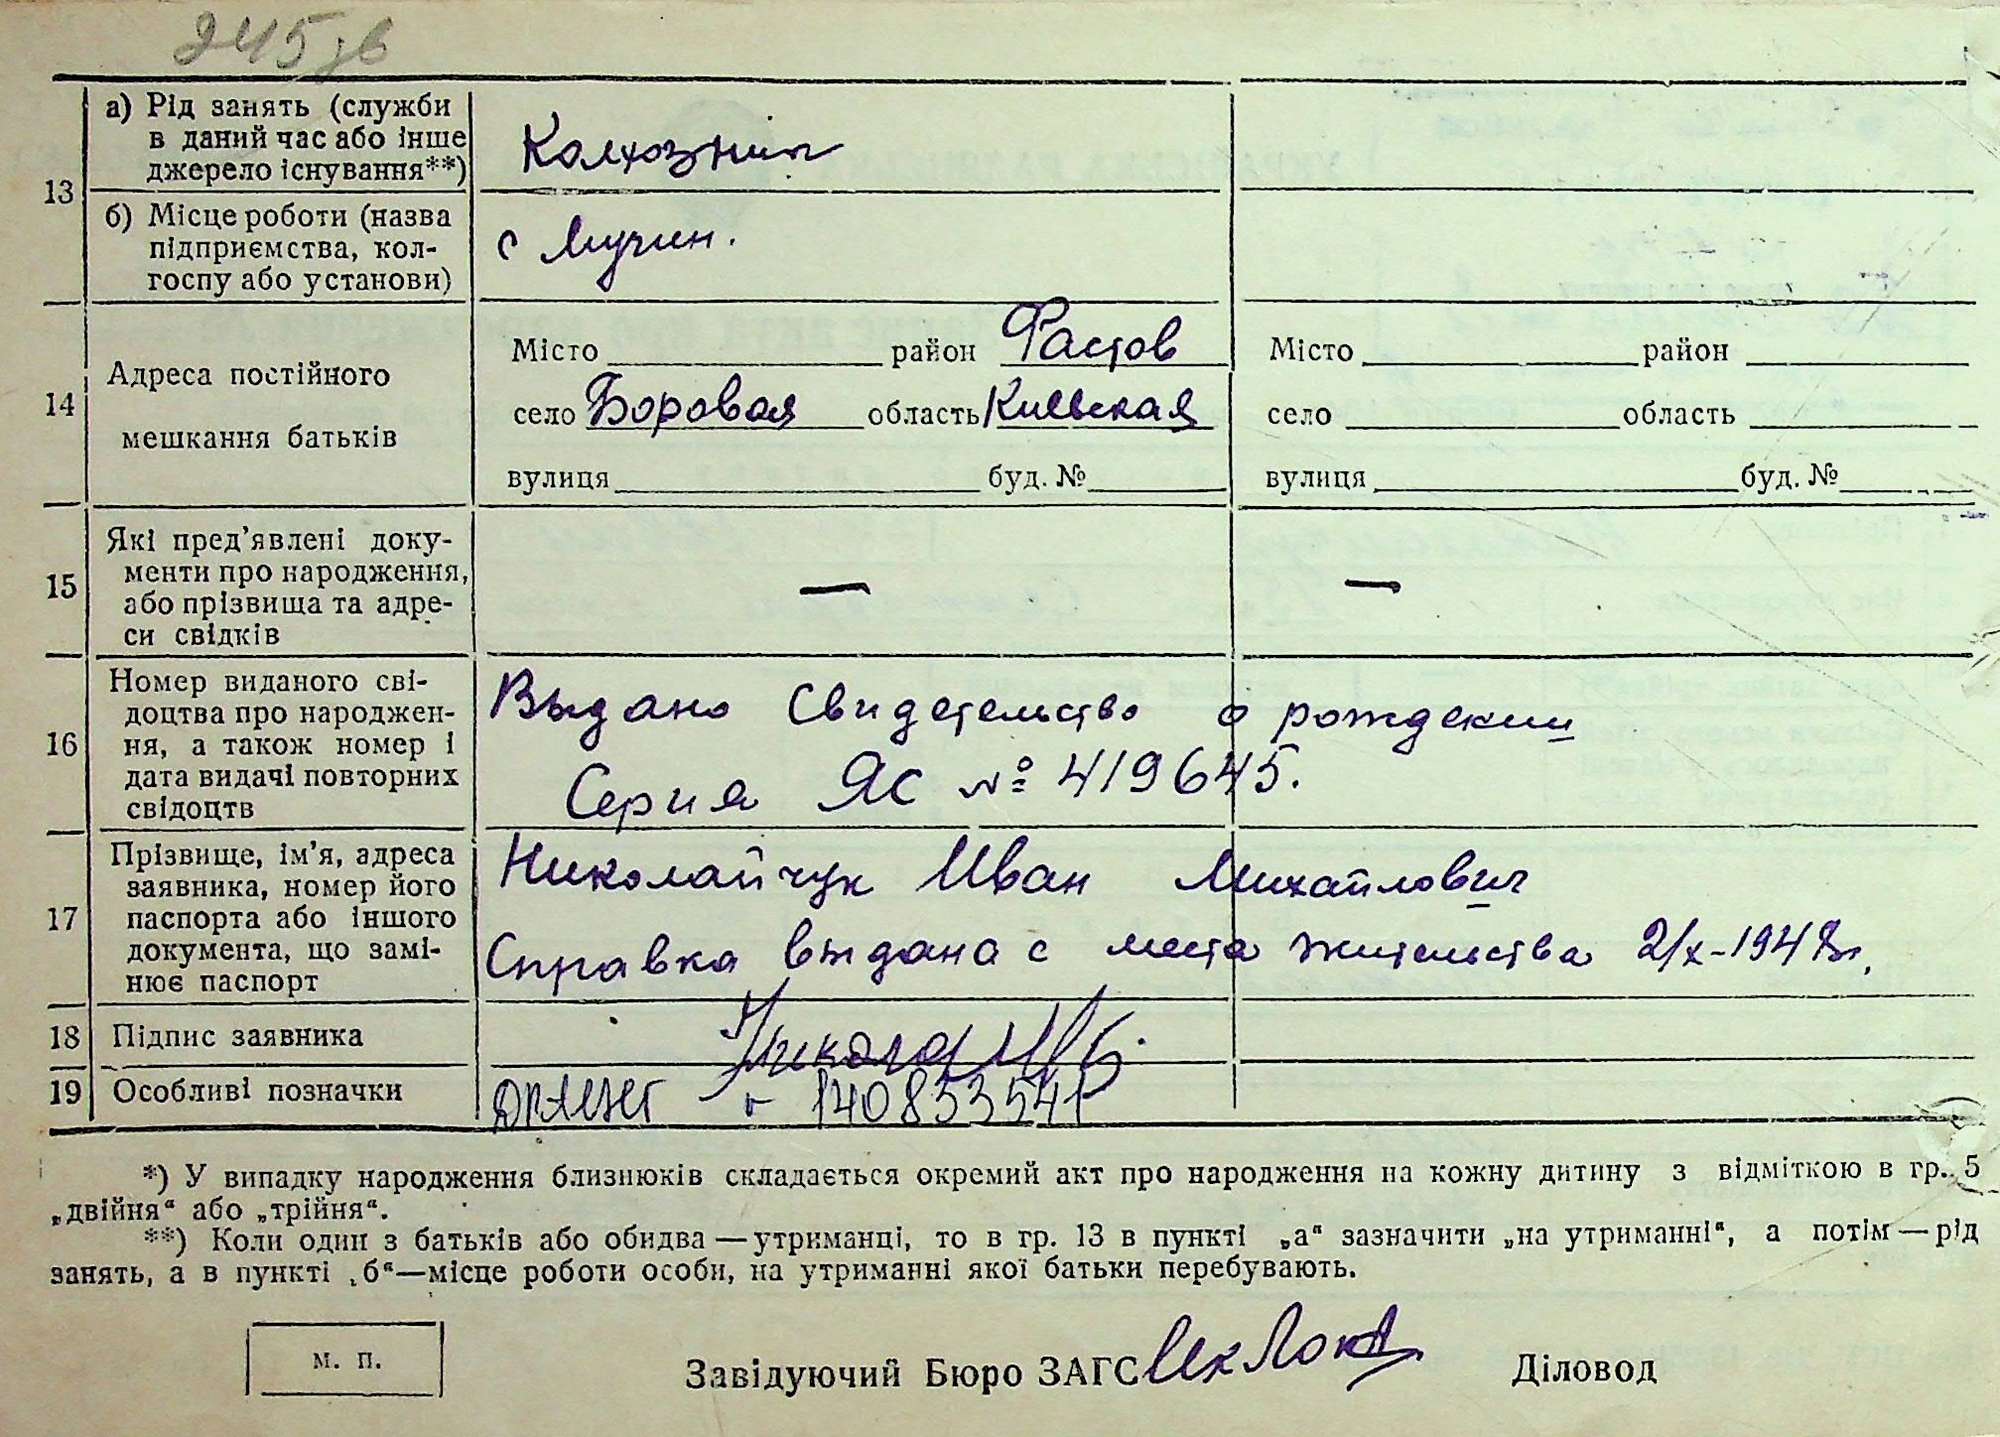 245зв
13
а) Рід занять (служби
в даний час або інше
джерело існування**)
Колхозник
б) Місце роботи (назва
підприємства, кол-
госпу або установи)
с Мучин.
14
Адреса постійного
мешкання батьків
Місто район Фастов
село Боровая область Киевская
вулиця буд. №
Місто район
село область
вулиця буд. №
15
Які пред'явлені доку-
менти про народження,
або прізвища та адре-
си свідків
—
—
16
Номер виданого сві-
доцтва про народжен-
ня, а також номер і
дата видачі повторних
свідоцтв
Выдано Свидетельство о рождении
Серия ЯС № 419645.
17
Прізвище, ім'я, адреса
заявника, номер його
паспорта або іншого
документа, що замі-
нює паспорт
Николайчук Иван Михайлович
Справка выдана с места жительства 2/X-1948г.
18 Підпис заявника
19 Особливі позначки
1408533541
*) У випадку народження близнюків складається окремий акт про народження на кожну дитину з відміткою в гр. 5
„двійня“ або „трійня“.
**) Коли один з батьків або обидва — утриманці, то в гр. 13 в пункті „а“ зазначити „на утриманні“, а потім — рід
занять, а в пункті „б“—місце роботи особи, на утриманні якої батьки перебувають.
м. п.
Завідуючий Бюро ЗАГС
Діловод